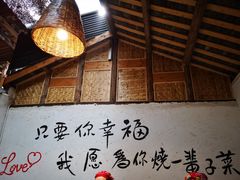 只要你幸福
我愿為你燒一輩子菜
Love